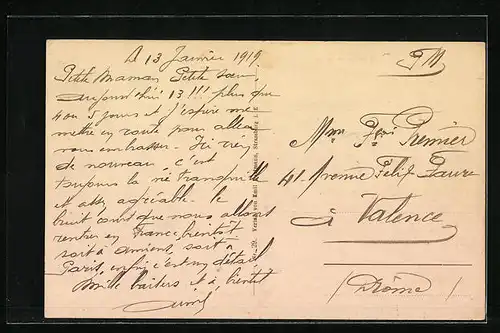 Le 13 Janvier 1919
Petite Maman Petite soeur,
aujourd'hui 13!!! plus que
4 ou 5 jours et j'espère me
mettre en route pour aller
vous embrasser. Ici rien
de nouveau. c'est
toujours la vie tranquille
et assez agréable. le
bruit court que nous allons
rentrer en France bientôt
soit à Amiens, soit à
Paris, enfin c'est un détail
Mille baisers et à bientôt
F M
Mme
Premier
41 Avenue Felix Faure
à Valence
(Drôme)
Verlag von Emil Hartmann, Strassburg i. E.